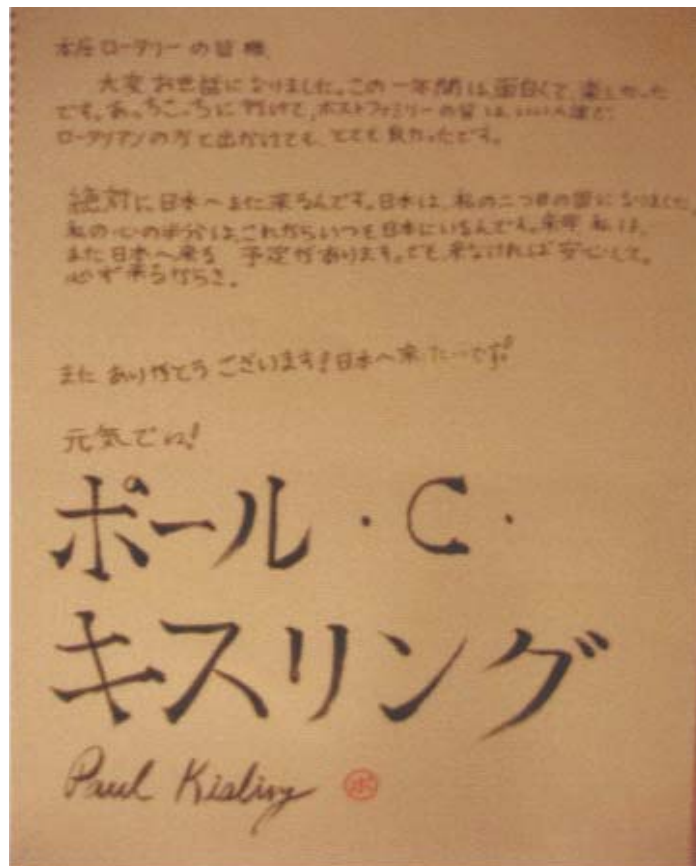 本庄ロータリーの皆様
大変お世話になりました。この一年間は、面白くて、楽しかった
です。あっちこっちに行けて、ホストファミリーの皆は、いい人達で、
ロータリアンの方と出かけても、とても良かったです。
絶対に日本へまた来るんです。日本は、私の二つ目の国になりました。
私の心の半分は、これからいつも日本にいるんです。来年 私は、
また日本へ来る 予定があります。でも、来なければ安心して。
必ず来るからさ。
また ありがとうございます!日本へ来たーいです!
元気でね!
ポール・C・
キスリング
Paul Kisling